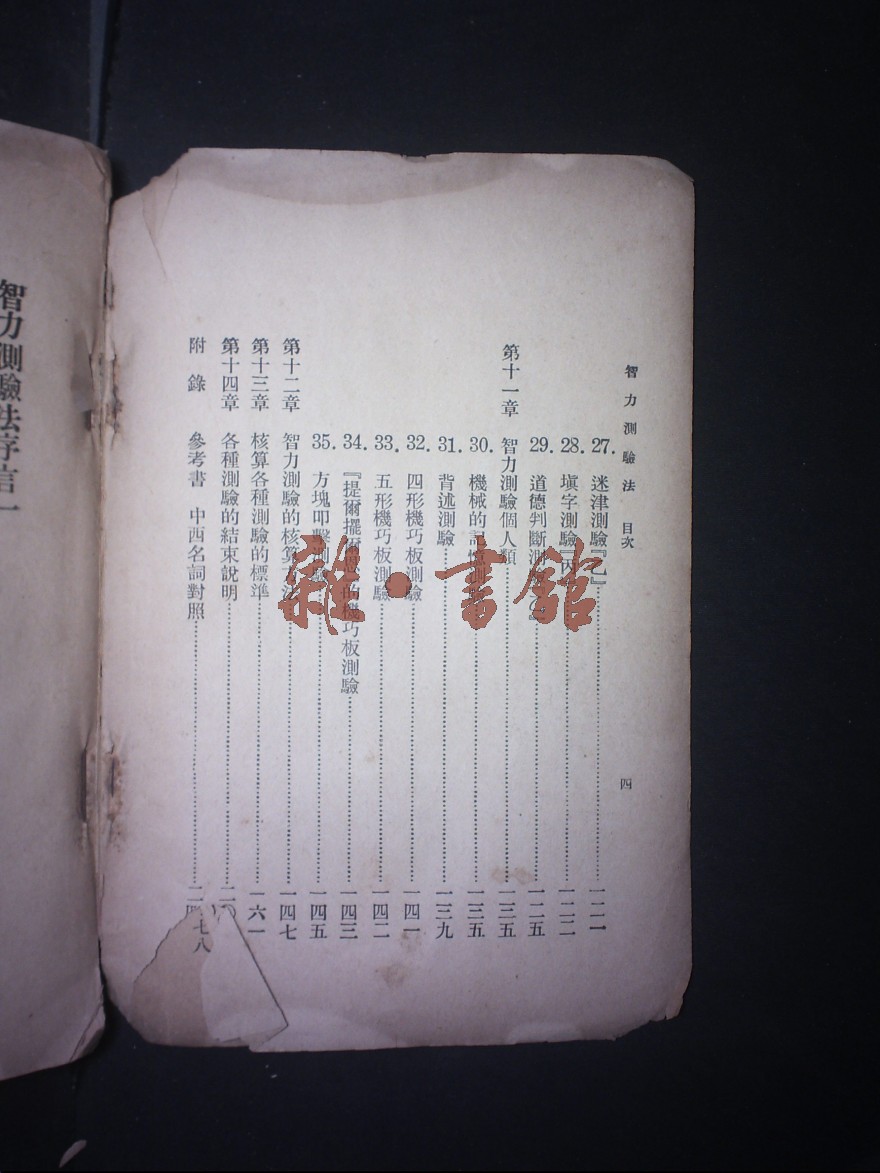 智力測驗法 目次
四
27. 迷津測驗『乙』……一二一
28. 塡字測驗『丙』……一二二
29. 道德判斷測驗『乙』……一二五
第十一章 智力測驗個人類……一三五
30. 機械的記憶測驗……一三五
31. 背述測驗……一三九
32. 四形機巧板測驗……一四一
33. 五形機巧板測驗……一四二
34. 『提爾擺爾恩』的機巧板測驗……一四三
35. 方塊叩擊測驗……一四五
第十二章 智力測驗的核算方法……一四七
第十三章 核算各種測驗的標準……一六一
第十四章 各種測驗的結束說明……二
附錄 參考書 中西名詞對照……二
七八
智力測驗法序言一
雜·書館